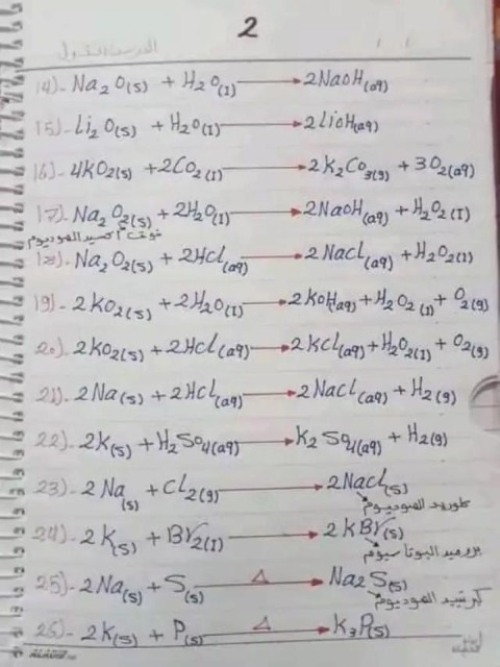 2
14)- Na₂O(s) + H₂O(l) → 2NaOH(aq)
15)- Li₂O(s) + H₂O(l) → 2LiOH(aq)
16)- 4KO₂(s) + 2CO₂(l) → 2K₂CO₃(s) + 3O₂(aq)
17)- Na₂O₂(s) + 2H₂O(l) → 2NaOH(aq) + H₂O₂(l)
فوق أكسيد الصوديوم
18)- Na₂O₂(s) + 2HCl(aq) → 2NaCl(aq) + H₂O₂(l)
19)- 2KO₂(s) + 2H₂O(l) → 2KOH(aq) + H₂O₂(l) + O₂(g)
20)- 2KO₂(s) + 2HCl(aq) → 2KCl(aq) + H₂O₂(l) + O₂(g)
21)- 2Na(s) + 2HCl(aq) → 2NaCl(aq) + H₂(g)
22)- 2K(s) + H₂SO₄(aq) → K₂SO₄(aq) + H₂(g)
23)- 2Na(s) + Cl₂(g) → 2NaCl(s)
كلوريد الصوديوم
24)- 2K(s) + Br₂(l) → 2KBr(s)
بروميد البوتاسيوم
25)- 2Na(s) + S(s) Δ→ Na₂S(s)
كبرتيد الصوديوم
26)- 2K(s) + P(s) Δ→ K₃P(s)